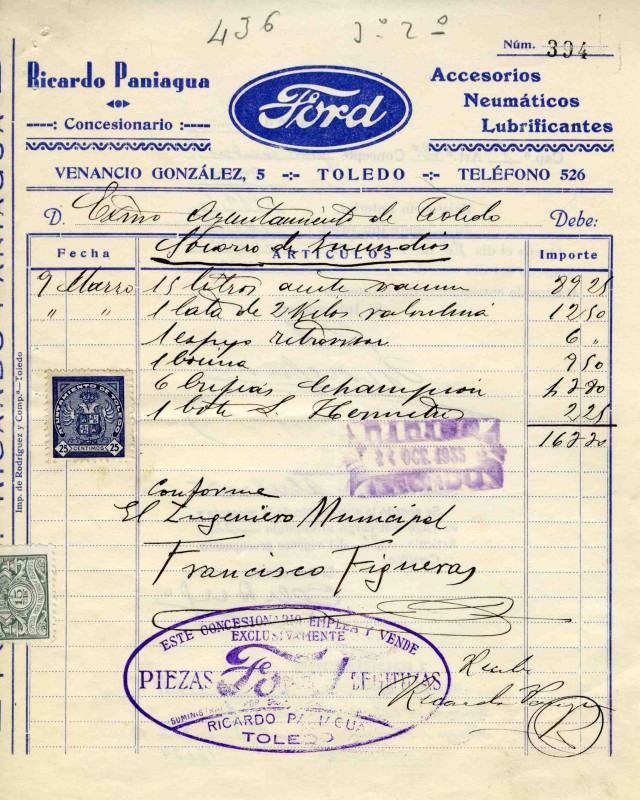 436 3º 2º
Núm. 394
Ricardo Paniagua
Concesionario
Ford
Accesorios
Neumáticos
Lubrificantes
VENANCIO GONZÁLEZ, 5 -:- TOLEDO -:- TELÉFONO 526
D. Exmo Ayuntamiento de Toledo Debe:
Socorro de Incendios
Fecha ARTÍCULOS Importe
9 Marzo 15 litros aceite 29 25
" " 1 lata de 2 Kilos valvulina 12 50
1 espejo retrovisor 6 "
1 bocina 9 50
6 bujias Champion
1 bote 2 25
AYUNTAMIENTO DE TOLEDO
25 CÉNTIMOS 25
Imp. de Rodríguez y Compª.-Toledo
OCT. 1935
Conforme
El Ingeniero Municipal
Francisco Figueras
15
ESTE CONCESIONARIO EMPLEA Y VENDE
EXCLUSIVAMENTE
PIEZAS Ford LEGITIMAS
RICARDO PANIAGUA
TOLEDO
Recibi
Ricardo